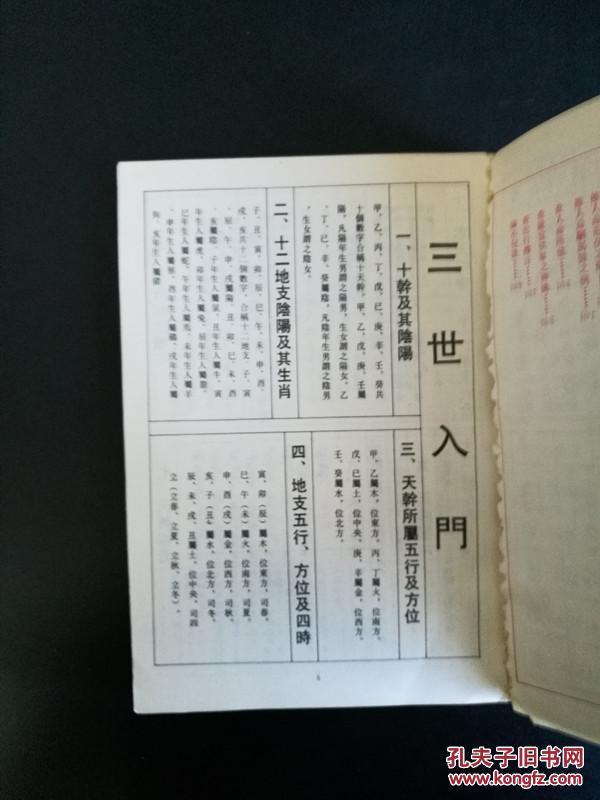 三世入門
一、十幹及其陰陽
甲、乙、丙、丁、戊、己、庚、辛、壬、癸共
十個數字合稱十天幹。甲、乙、戊、庚、壬屬
陽，凡陽年生男謂之陽男，生女謂之陽女。乙
、丁、己、辛、癸屬陰，凡陰年生男謂之陰男
，生女謂之陰女。
二、十二地支陰陽及其生肖
子、丑、寅、卯、辰、巳、午、未、申、酉、
戌、亥共十二個數字，合稱十二地支。子、寅
、辰、午、申、戌屬陽，丑、卯、巳、未、酉
、亥屬陰。子年生人屬鼠，丑年生人屬牛，寅
年生人屬虎，卯年生人屬兔，辰年生人屬龍，
巳年生人屬蛇，午年生人屬馬，未年生人屬羊
，申年生人屬猴，酉年生人屬雞，戌年生人屬
狗，亥年生人屬豬。
三、天幹所屬五行及方位
甲、乙屬木，位東方。丙、丁屬火，位南方。
戊、己屬土，位中央。庚、辛屬金，位西方。
壬、癸屬水，位北方。
四、地支五行、方位及四時
寅、卯（辰）屬木，位東方，司春。
巳、午（未）屬火，位南方，司夏。
申、酉（戌）屬金，位西方，司秋。
亥、子（丑）屬水，位北方，司冬。
辰、未、戌、丑屬土，位中央，司四
立（立春、立夏、立秋、立冬）。
孔夫子旧书网
www.kongfz.com